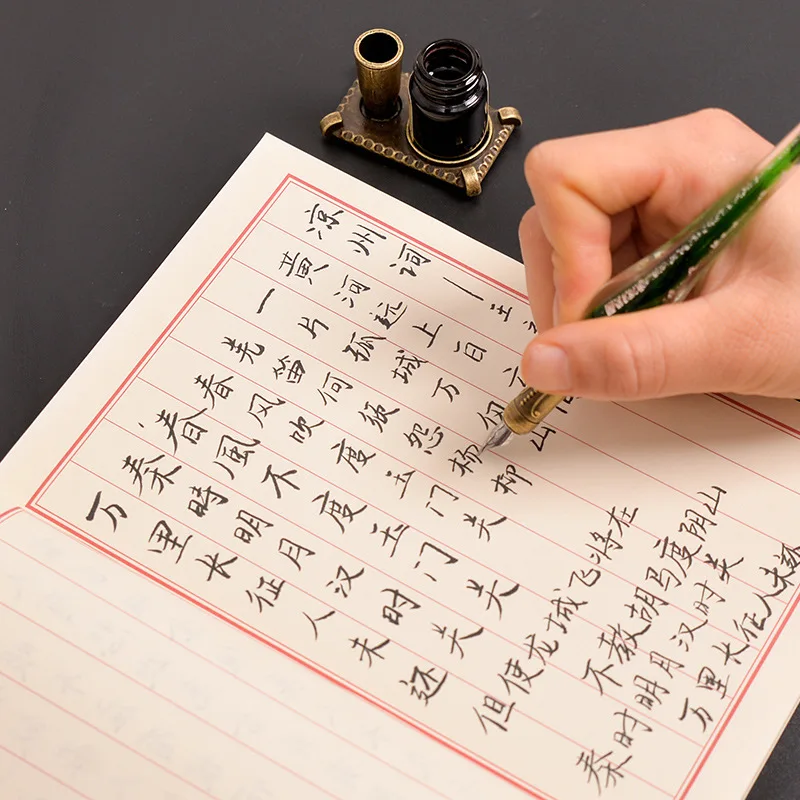 凉州词—王之
黄河远上白
一片孤城万仞山
羌笛何须怨杨柳
春风吹度玉门关
春風不度玉门关
秦時明月汉时关
万里长征人未还
但使龙城飞将在
不教胡马度阴山
秦时明月汉时关
万里长征人未还